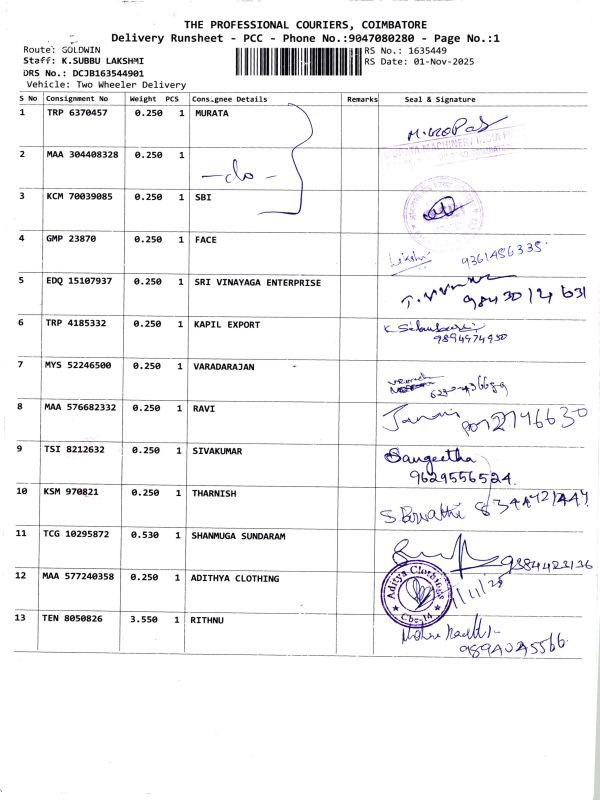 THE PROFESSIONAL COURIERS, COIMBATORE
Delivery Runsheet - PCC - Phone No.:9047080280 - Page No.:1
Route: GOLDWIN
RS No.: 1635449
Staff: K.SUBBU LAKSHMI
RS Date: 01-Nov-2025
DRS No.: DCJB163544901
Vehicle: Two Wheeler Delivery
S No Consignment No Weight PCS Consignee Details Remarks Seal & Signature
1 TRP 6370457 0.250 1 MURATA
2 MAA 304408328 0.250 1
-do-
3 KCM 70039085 0.250 1 SBI
4 GMP 23870 0.250 1 FACE
9361456335
5 EDQ 15107937 0.250 1 SRI VINAYAGA ENTERPRISE
6 TRP 4185332 0.250 1 KAPIL EXPORT
9894974930
7 MYS 52246500 0.250 1 VARADARAJAN
8 MAA 576682332 0.250 1 RAVI
9 TSI 8212632 0.250 1 SIVAKUMAR
Sangeetha
9629556524.
10 KSM 970821 0.250 1 THARNISH
11 TCG 10295872 0.530 1 SHANMUGA SUNDARAM
12 MAA 577240358 0.250 1 ADITHYA CLOTHING
Aditya Clothings
Cbe-14
13 TEN 8050826 3.550 1 RITHNU